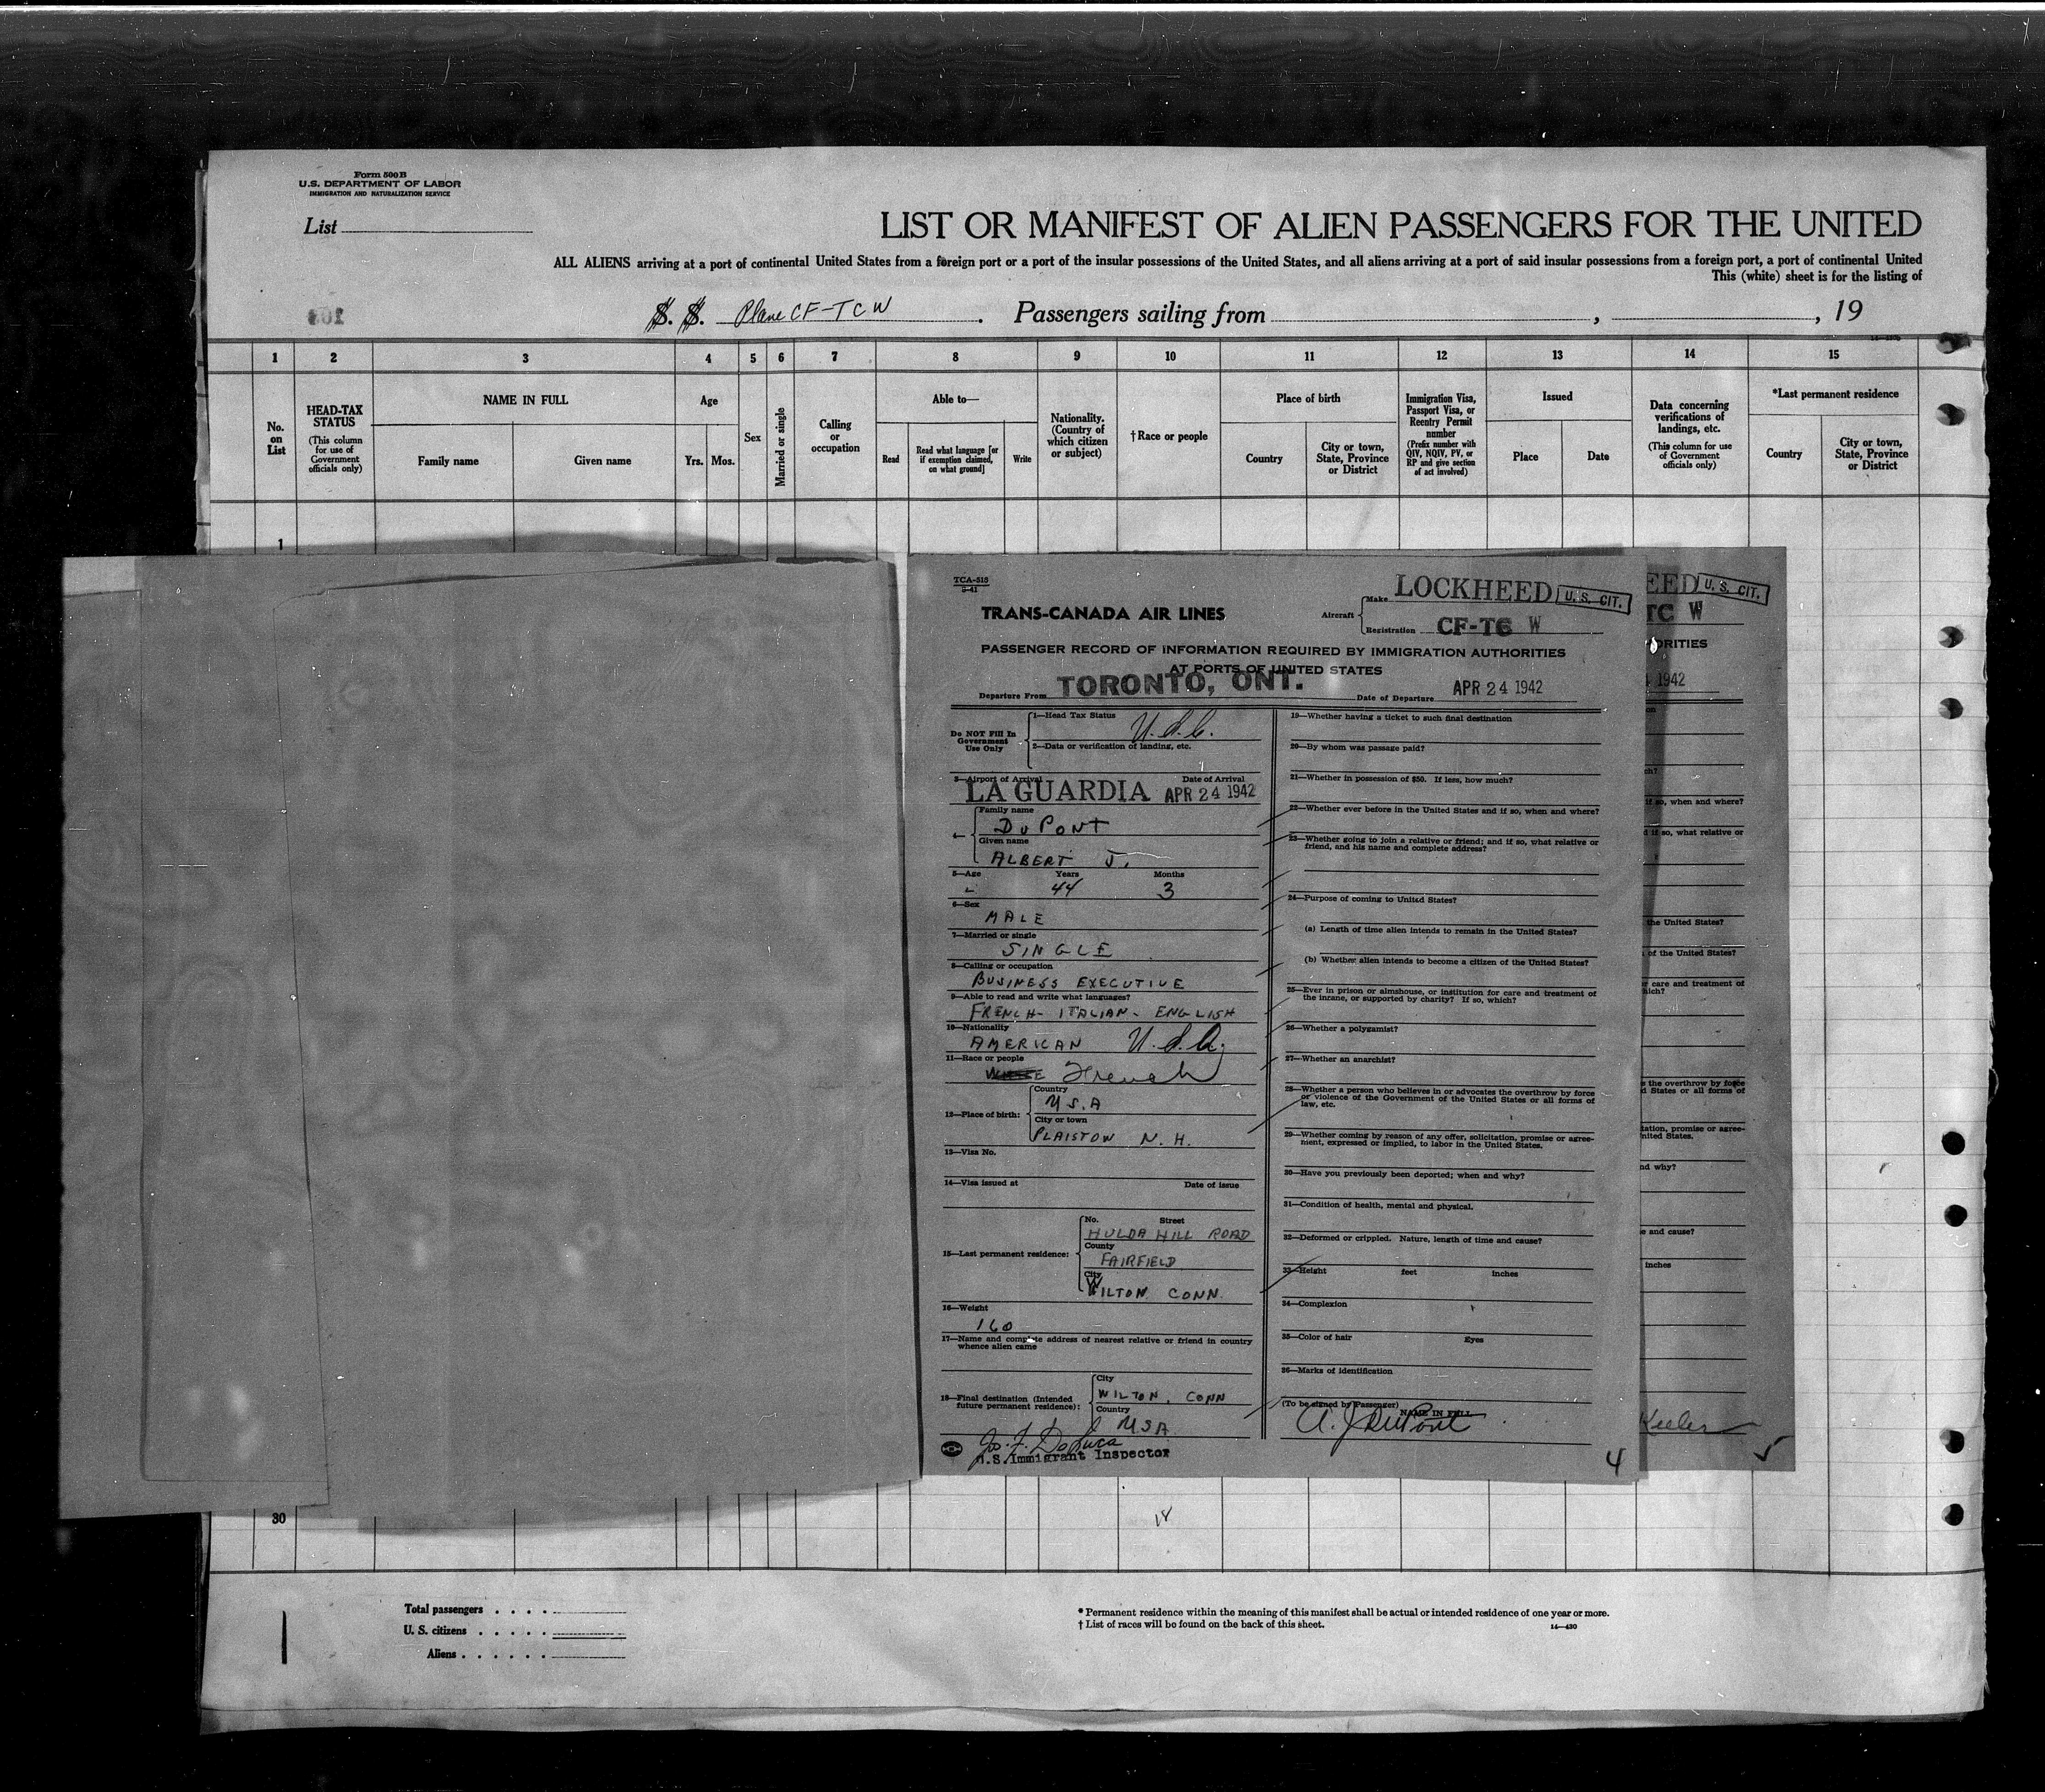 Form 500B
U.S. DEPARTMENT OF LABOR
IMMIGRATION AND NATURALIZATION SERVICE
List
LIST OR MANIFEST OF ALIEN PASSENGERS FOR THE UNITED
ALL ALIENS arriving at a port of continental United States from a foreign port or a port of the insular possessions of the United States, and all aliens arriving at a port of said insular possessions from a foreign port, a port of continental United
This (white) sheet is for the listing of
S. S. Plane CF-TCW. Passengers sailing from , , 19
1 2 3 4 5 6 7 8 9 10 11 12 13 14 15
No. on List
HEAD-TAX STATUS
(This column for use of Government officials only)
NAME IN FULL
Family name
Given name
Age
Yrs. Mos.
Sex
Married or single
Calling or occupation
Able to—
Read
Read what language [or if exemption claimed, on what ground]
Write
Nationality. (Country of which citizen or subject)
†Race or people
Place of birth
Country
City or town, State, Province or District
Immigration Visa, Passport Visa, or Reentry Permit number
(Prefix number with QIV, NQIV, PV, or RP and give section of act involved)
Issued
Place
Date
Data concerning verifications of landings, etc.
(This column for use of Government officials only)
*Last permanent residence
Country
City or town, State, Province or District
1
TCA-518
5-41
TRANS-CANADA AIR LINES
Aircraft
Make LOCKHEED
U. S. CIT.
Registration CF-TC W
PASSENGER RECORD OF INFORMATION REQUIRED BY IMMIGRATION AUTHORITIES
AT PORTS OF UNITED STATES
Departure From TORONTO, ONT. Date of Departure APR 24 1942
Do NOT Fill In Government Use Only
1—Head Tax Status U.S.C.
2—Data or verification of landing, etc.
3—Airport of Arrival Date of Arrival
LA GUARDIA APR 24 1942
Family name
DuPONT
Given name
ALBERT J.
5—Age Years Months
44 3
6—Sex
MALE
7—Married or single
SINGLE
8—Calling or occupation
BUSINESS EXECUTIVE
9—Able to read and write what languages?
FRENCH - ITALIAN - ENGLISH
10—Nationality
AMERICAN U.S.A.
11—Race or people
French
12—Place of birth:
Country
U.S.A
City or town
PLAISTOW N. H.
13—Visa No.
14—Visa issued at Date of issue
15—Last permanent residence:
No. Street
HULDA HILL ROAD
County
FAIRFIELD
City
WILTON CONN.
16—Weight
160
17—Name and complete address of nearest relative or friend in country
whence alien came
18—Final destination (Intended
future permanent residence):
City
WILTON, CONN
Country
USA
Jos. F. DeLuca
U.S. Immigrant Inspector
19—Whether having a ticket to such final destination
20—By whom was passage paid?
21—Whether in possession of $50. If less, how much?
22—Whether ever before in the United States and if so, when and where?
23—Whether going to join a relative or friend; and if so, what relative or
friend, and his name and complete address?
24—Purpose of coming to United States?
(a) Length of time alien intends to remain in the United States?
(b) Whether alien intends to become a citizen of the United States?
25—Ever in prison or almshouse, or institution for care and treatment of
the insane, or supported by charity? If so, which?
26—Whether a polygamist?
27—Whether an anarchist?
28—Whether a person who believes in or advocates the overthrow by force
or violence of the Government of the United States or all forms of
law, etc.
29—Whether coming by reason of any offer, solicitation, promise or agree-
ment, expressed or implied, to labor in the United States.
30—Have you previously been deported; when and why?
31—Condition of health, mental and physical.
32—Deformed or crippled. Nature, length of time and cause?
33—Height feet inches
34—Complexion
35—Color of hair Eyes
36—Marks of identification
(To be signed by Passenger) NAME IN FULL
A. J. DuPont
4
EED
U. S. CIT.
TC W
ORITIES
1942
if so, when and where?
if so, what relative or
the United States?
of the United States?
care and treatment of
the overthrow by force
States or all forms of
tation, promise or agree-
nited States.
nd why?
e and cause?
inches
Keeler
5
30
18
Total passengers
U. S. citizens
Aliens
* Permanent residence within the meaning of this manifest shall be actual or intended residence of one year or more.
† List of races will be found on the back of this sheet.
14—430